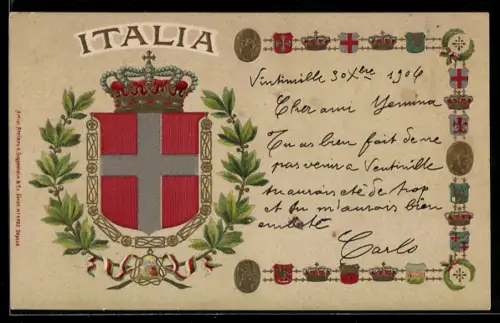 ITALIA
Vintimille 30 Xbre 1904
Cher ami Gemma
Tu as bien fait de ne
pas venir a Ventimille
tu aurais eté de trop
et tu m'aurais bien
embeté
Carlo